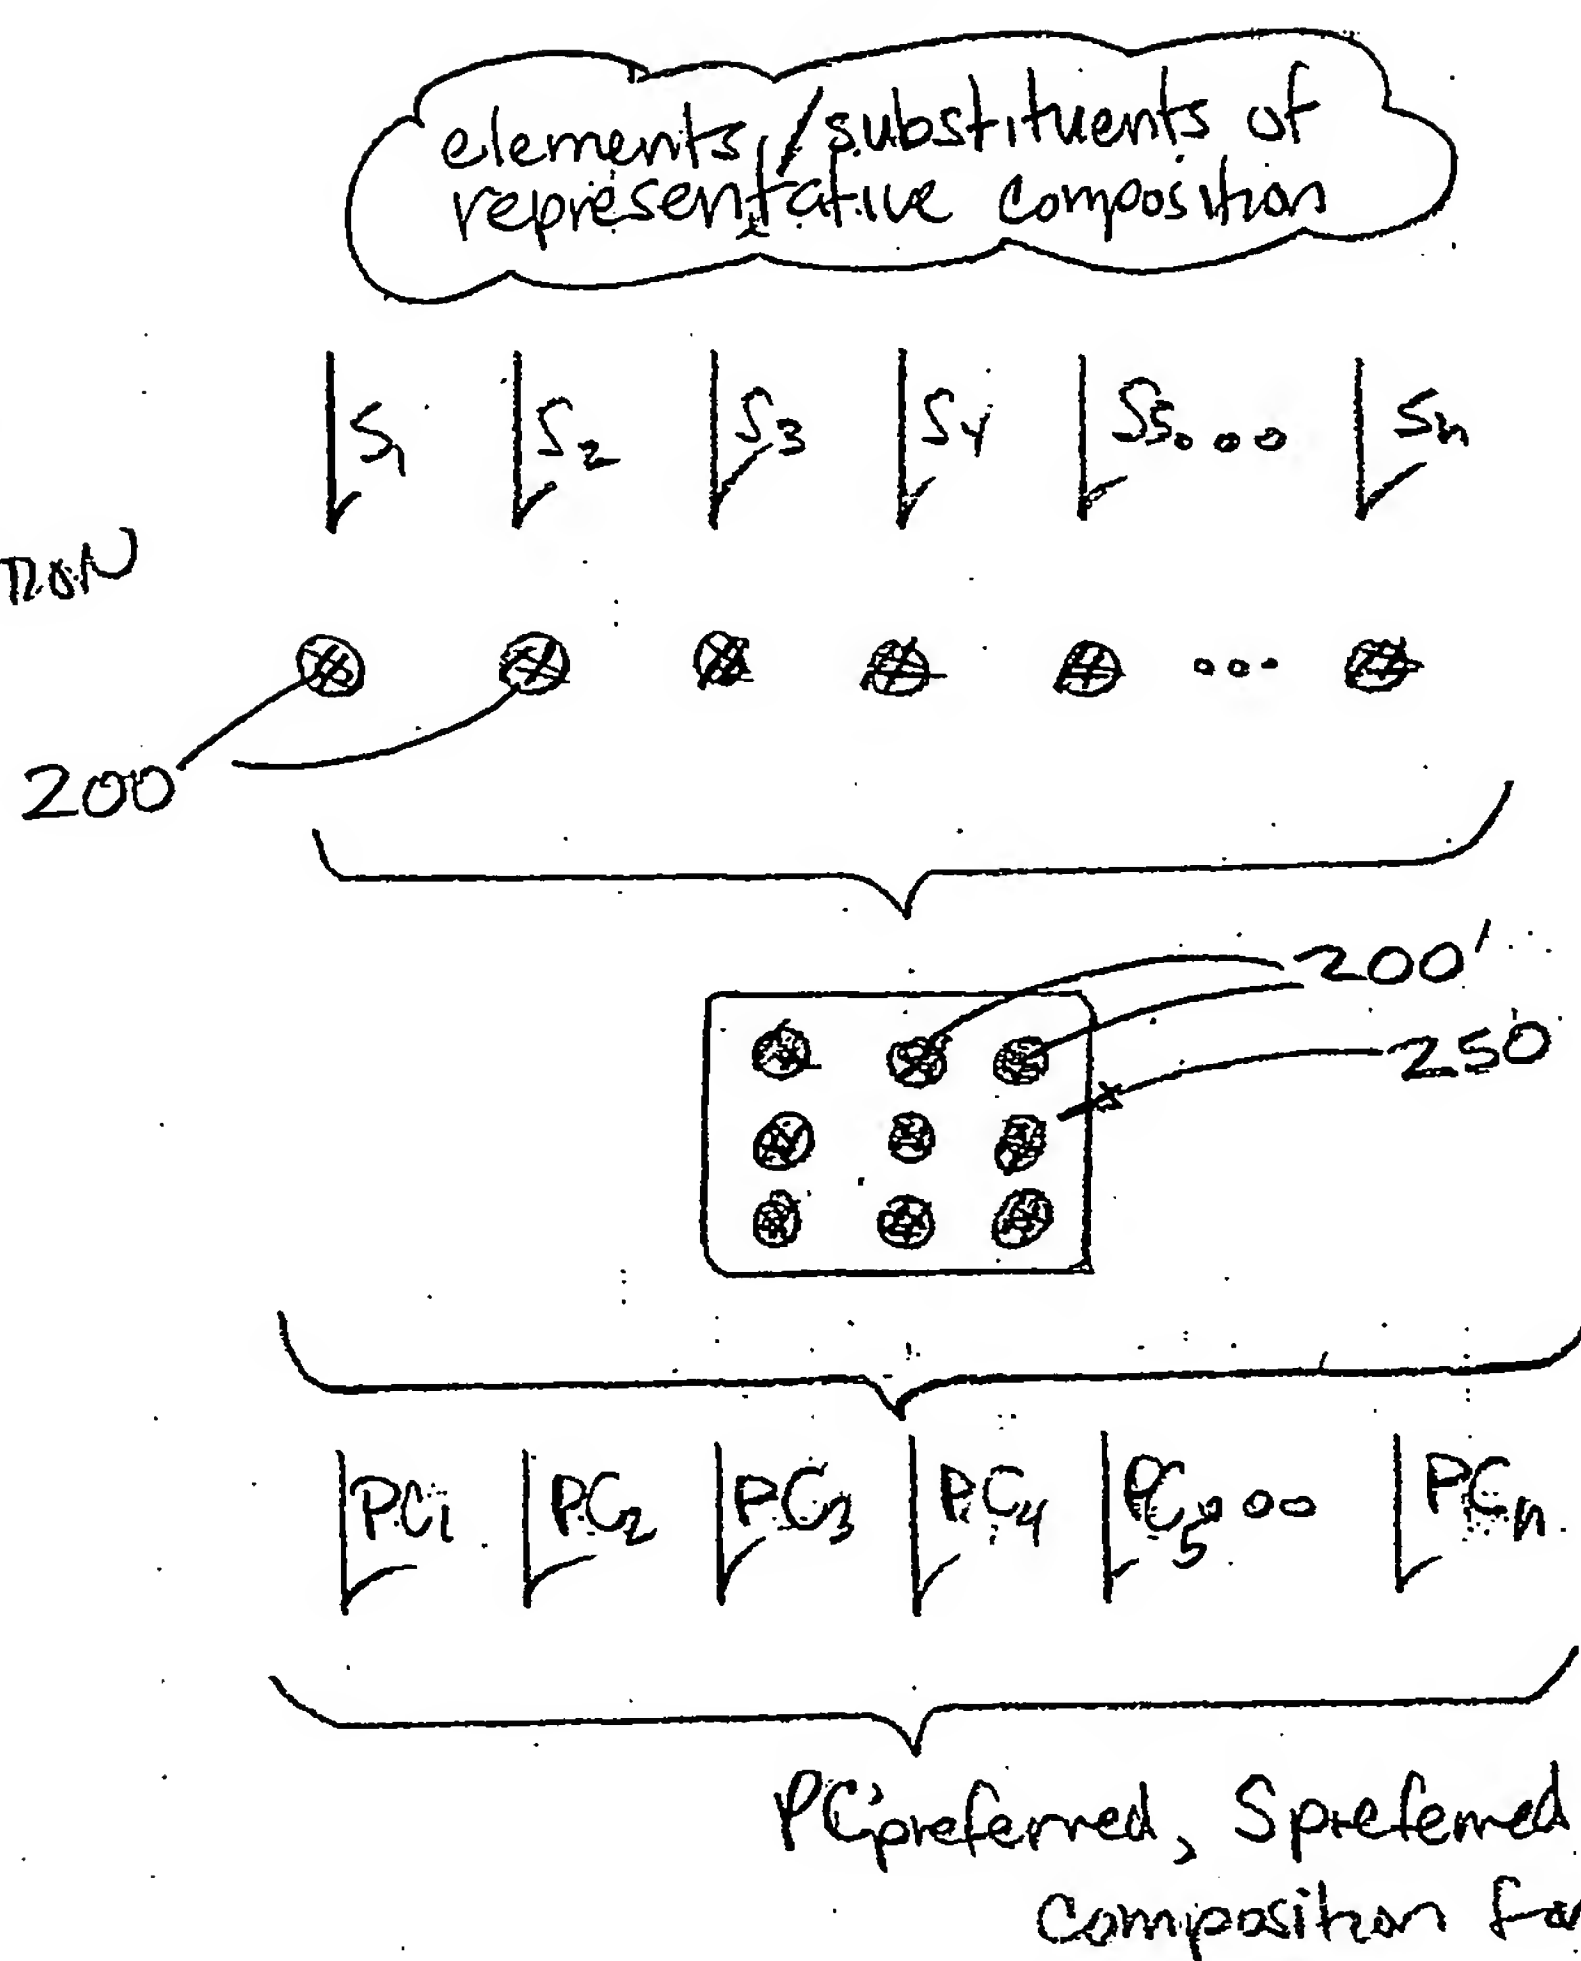 elements/substituents of
representative composition
S1 S2 S3 S4 S5... Sn
...
200
200'
250
PC1 PC2 PC3 PC4 PC5... PCn
PC'preferred, Spreferred
Composition